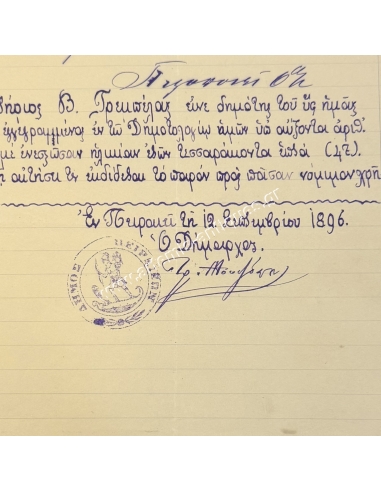 δήριος Β. Γρεμπέλας εἶνε δημότης τοῦ ὑφ' ἡμᾶς
ἐγγεγραμμένος ἐν τῷ Δημοτολογίῳ ἡμῶν ὑπ' αὔξοντα ἀριθ.
ἡλικίαν ἐτῶν τεσσαράκοντα ἑπτὰ (47).
αἰτήσει τῳ ἐκδίδεται τὸ παρὸν πρὸς πᾶσαν νόμιμον χρῆ
Ἐν Πειραιεῖ τῇ 12 Σεπτεμβρίου 1896.
Ὁ Δήμαρχος.
ΔΗΜΟΣ ΠΕΙΡΑΙΩΝ